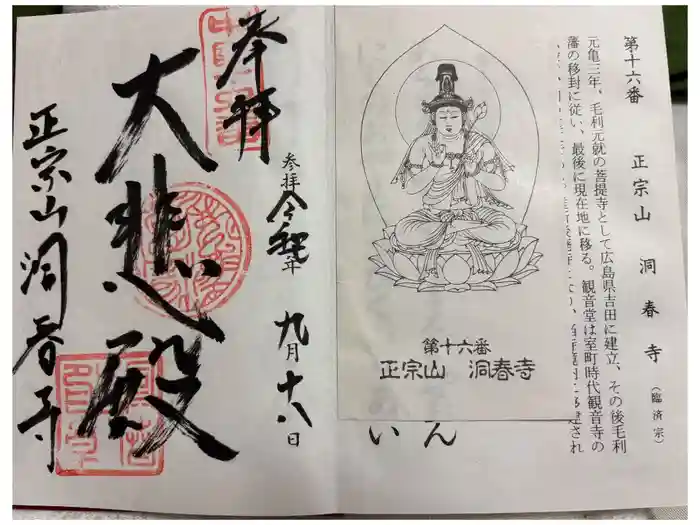 第十六番 正宗山 洞春寺 (臨済宗)
元亀三年、毛利元就の菩提寺として広島県吉田に建立、その後毛利
藩の移封に従い、最後に現在地に移る。観音堂は室町時代観音寺の
第十六番
正宗山 洞春寺
いん
奉拝
参拝 令和 年 九月十八日
大悲殿
正宗山洞春寺